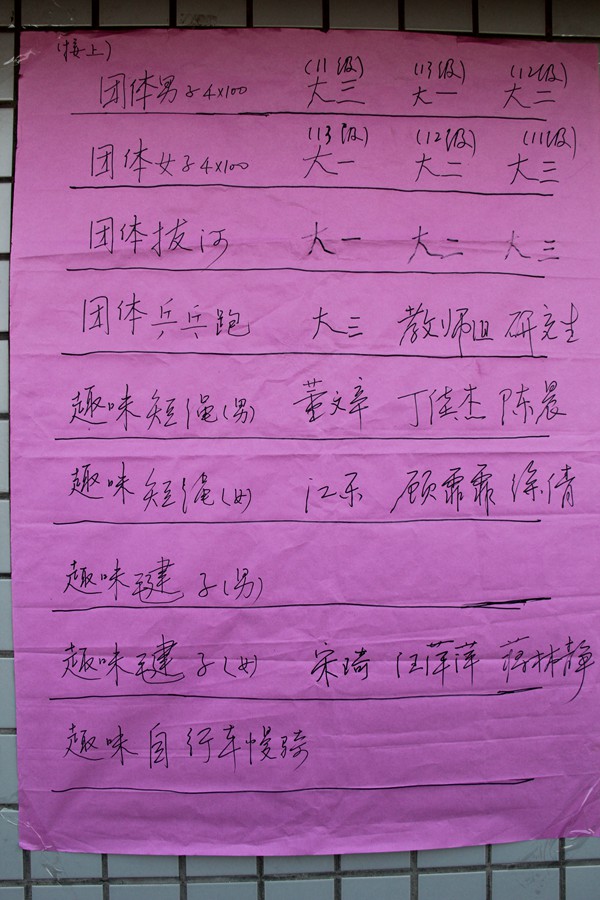 (接上)
(11级) (13级) (12级)
团体男子4×100 大三 大一 大二
(13级) (12级) (11级)
团体女子4×100 大一 大二 大三
团体拔河 大一 大二 大三
团体乒乓跑 大三 教师组 研究生
趣味短绳(男) 董文章 丁佳杰 陈晨
趣味短绳(女) 江乐 顾霏霏 徐倩
趣味毽子(男)
趣味毽子(女) 宋琦 汪萍萍 蒋林静
趣味自行车慢骑